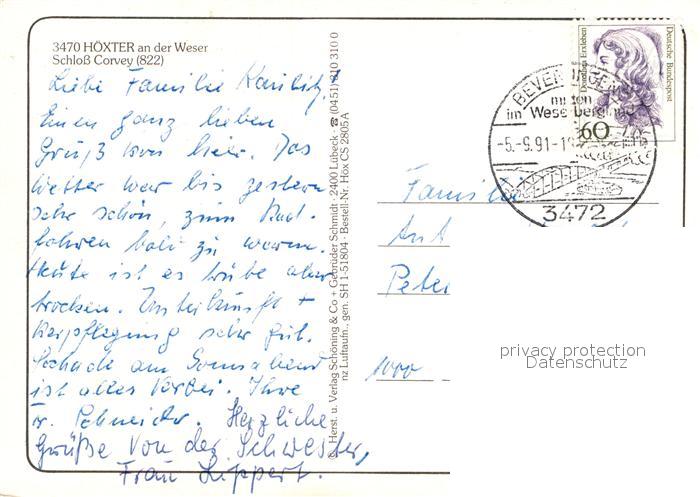 3470 HÖXTER an der Weser
Schloß Corvey (822)
Liebe Familie
Einen ganz lieben
Gruß von hier. Das
Wetter war bis gestern
sehr schön, zum Rad-
fahren bald zu warm.
Heute ist es trübe aber
trocken. Unterkunft +
Verpflegung sehr gut.
Schade am Sonnabend
ist alles vorbei. Ihre
Fr. Schneider. Herzliche
Grüße von der Schwester,
Frau Lippert.
© Herst. u. Verlag Schöning & Co + Gebrüder Schmidt · 2400 Lübeck · ☎ (0451) 310 310 0
nz Luftaufn., gen. SH 1-51804 · Bestell-Nr. Hox CS 2805A
Dorothea Erxleben
Deutsche Bundespost
60
BEVERUNGEN
mitten
im Weserbergland
-5.-9.91-
3472
Famili
Ant
Peter
1000
privacy protection
Datenschutz